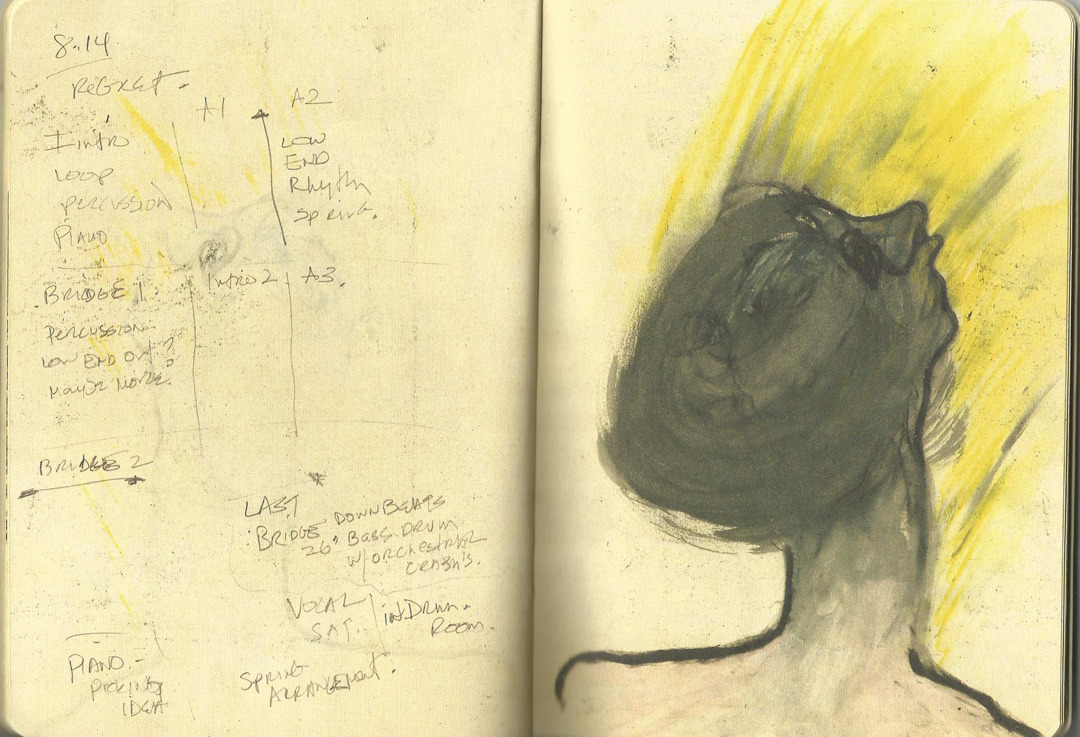 8.14
REGRET.
A1
A2
Intro
LOOP
PERCUSSION
PIANO
LOW
END
Rhythm
SPRING.
BRIDGE 1.
PERCUSSION
LOW END OUT?
MORE.
Intro 2
A3.
BRIDGE 2
LAST
BRIDGE DOWNBEATS
26" BASS DRUM
W/ ORCHESTRAL
CRASH'S.
VOCAL
SAT.
in DRUM.
ROOM.
PIANO -
PICKING
IDEA
SPRING
ARRANGEMENT.